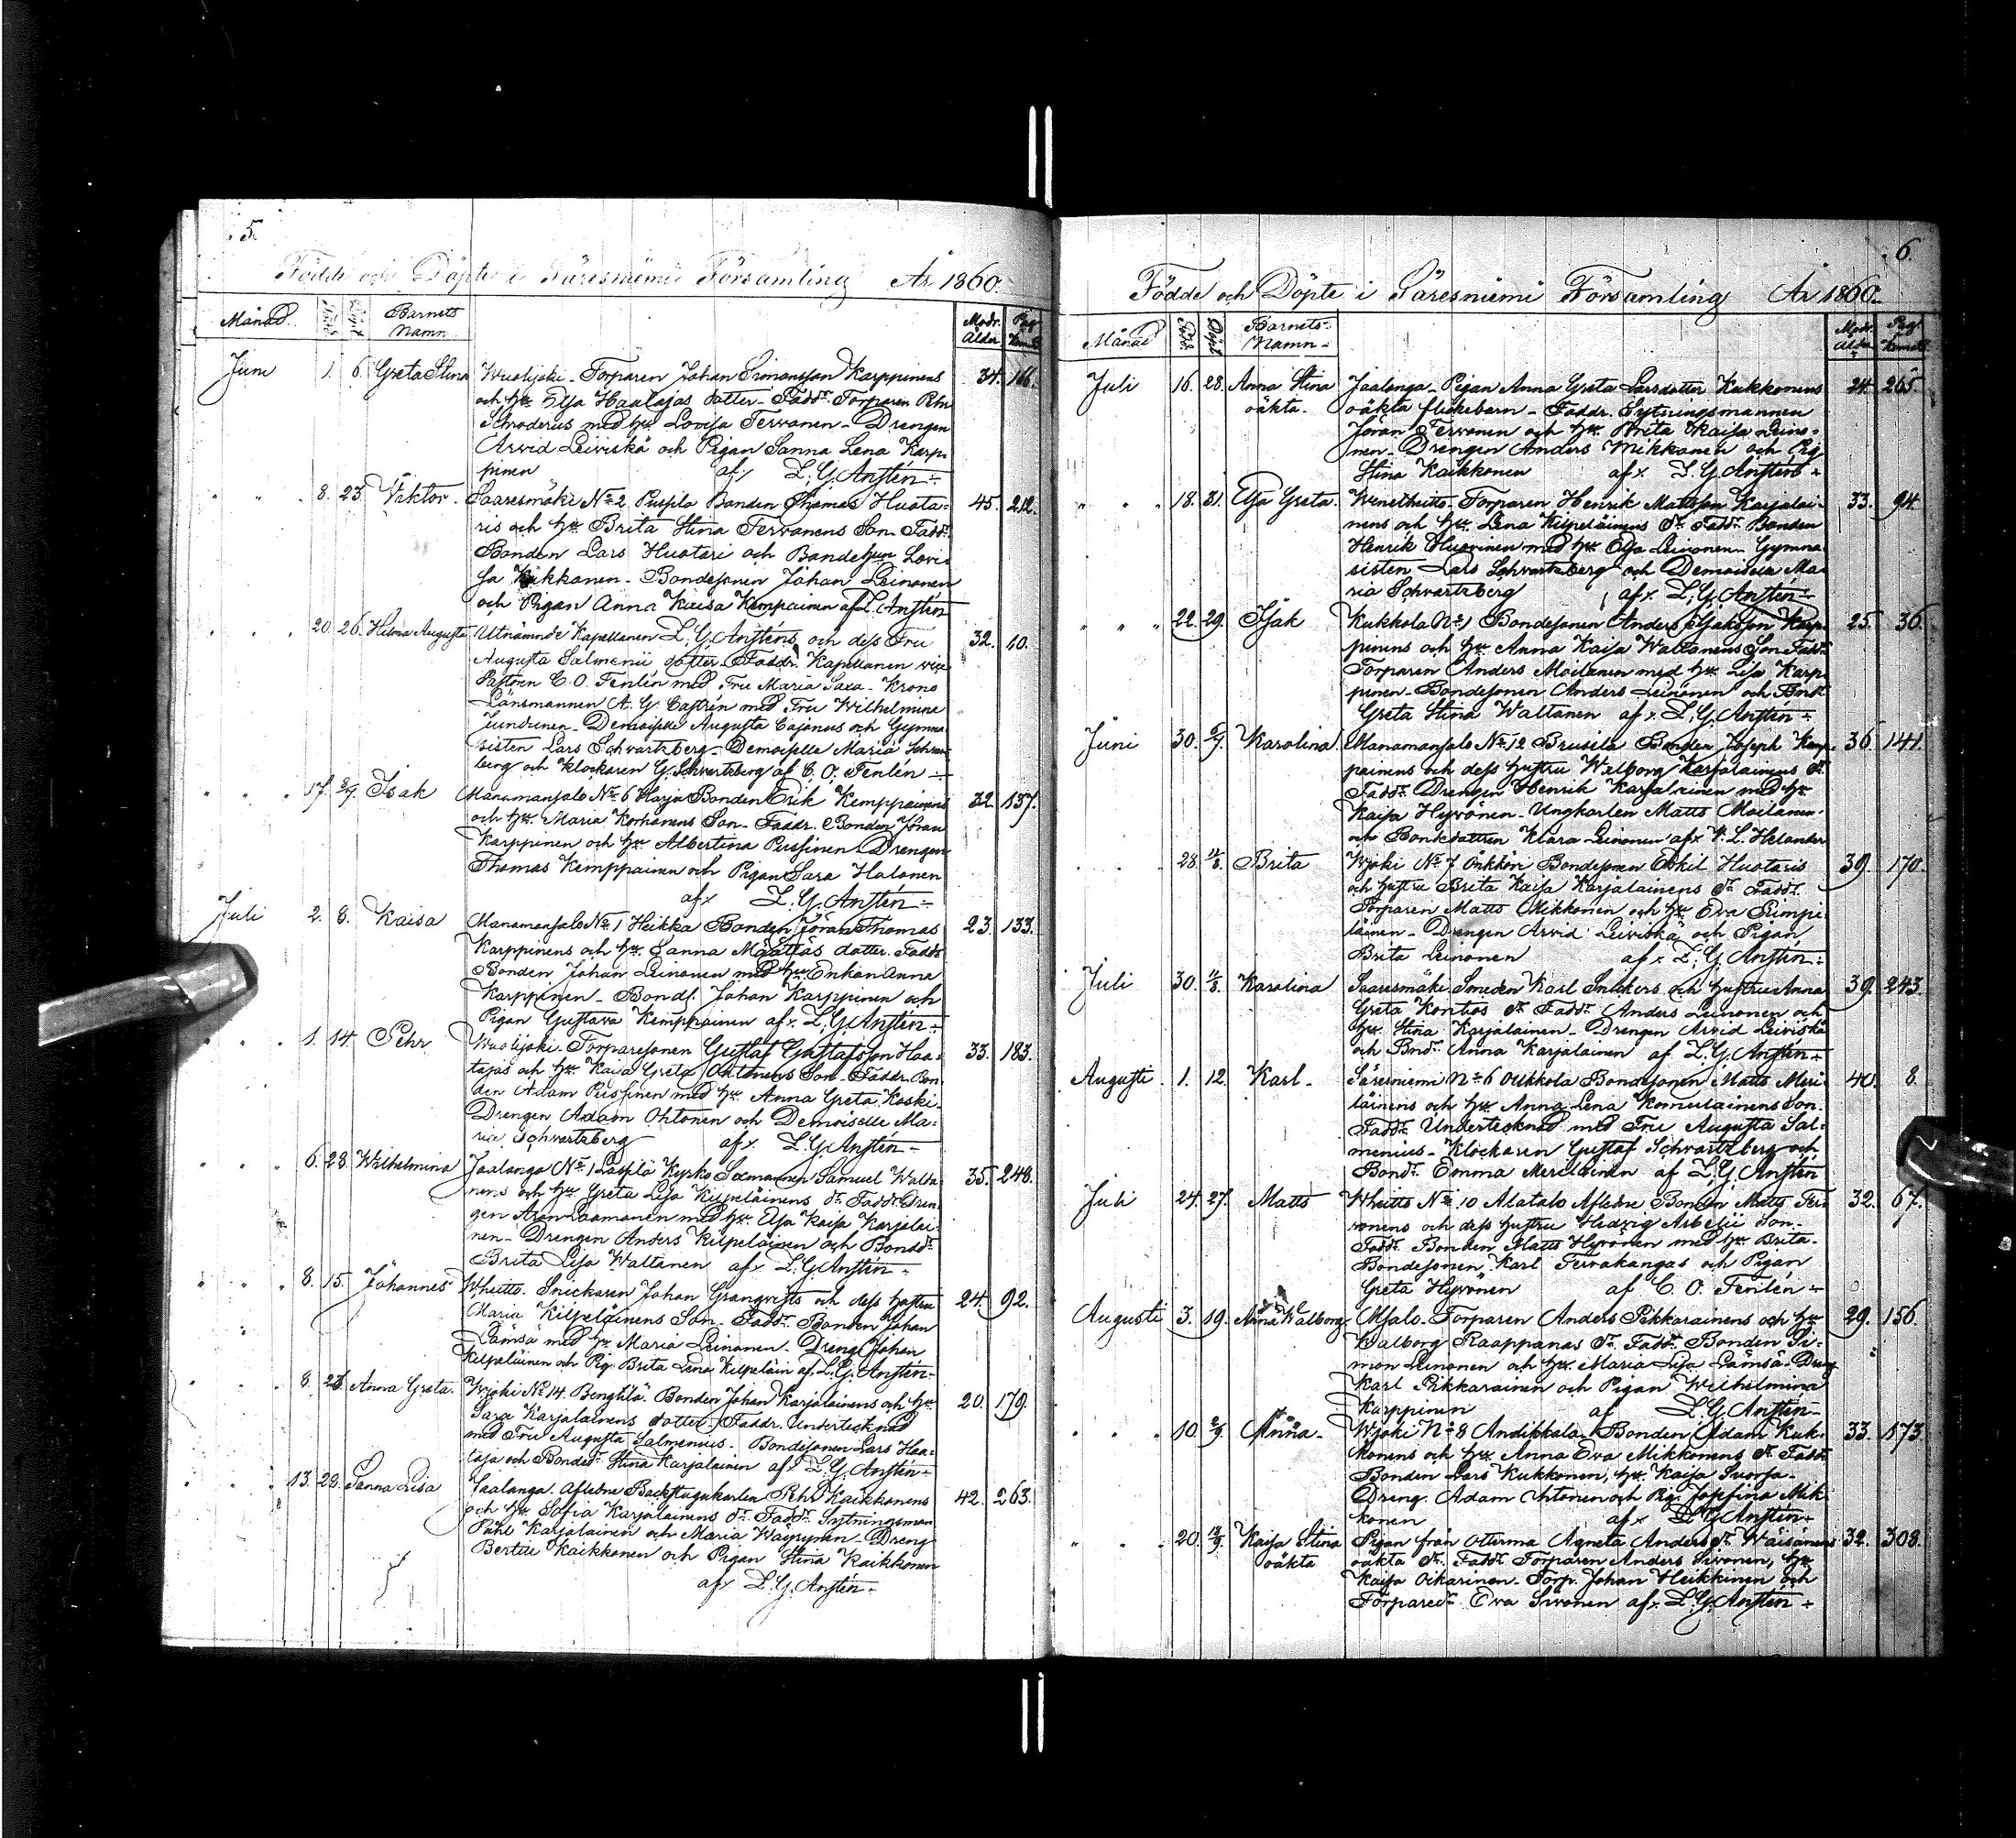 5.
Födde och Döpte i Säresniemi Församling År 1860.
Månad. Född Döpt Barnets Namn Modr. Ålder Pag.
Juni 1. 6. Greta Stina Wuolijoki - Torparen Johan Simonsson Karppinens 34. 166.
och hu. Elsa Haatajas dotter - Faddr. Torparen Pehr
Schroderus med hu. Lovisa Tervonen - Drengen
Arvid Leiviskä och Pigan Sanna Lena Karp-
pinen af L. G. Anstén
8. 23. Viktor. Saaresmäki No 2 Puspla Bonden Thomas Huota- 45. 212.
ris och hu. Brita Stina Tervonens Son - Fadd.
Bonden Lars Huotari och Bondehun Lovi-
sa Kukkonen - Bondesonen Johan Leinonen
och Pigan Anna Kaisa Kemppainen af L. Anstén
20. 26. Hilma Augusta Utnämnde Kapellanen L. G. Ansténs och dess Fru 32. 10.
Augusta Salmenii dotter - Faddr. Kapellanen vice
Pastoren C. O. Fenlén med Fru Maria Sara - Krono
Länsmannen A. G. Castrén med Fru Wilhelmina
- Demoiselle Augusta Cajanus och Gymna-
sisten Lars Schvartzberg - Demoiselle Maria Schvartz-
berg och Klockaren G. Schvartzberg af C. O. Fenlén
17. 29. Isak Manamansalo No 6 Harja Bonden Erik Kemppainens 32. 137.
och hu. Maria Korhonens Son - Faddr. Bonden Jöran
Karppinen och hu. Albertina Pussinen - Drengen
Thomas Kemppainen och Pigan Sara Halonen
af L. G. Anstén
Juli 2. 8. Kaisa Manamansalo No 1 Heikka Bonden Jöran Thomas 23. 133.
Karppinens och hu. Sanna Määttäs dotter. Fadd.
Bonden Johan Leinonen med hu. Enkan Anna
Karppinen - Bonds. Johan Karppinen och
Pigan Gustava Kemppainen af L. G. Anstén
1. 14. Pehr Wuolijoki - Torparesonen Gustaf Gustafsson Haa- 33. 183.
tajas och hu. Kaisa Greta Ohtonens Son - Faddr. Bon-
den Adam Pussinen med hu. Anna Greta Koski-
Drengen Adam Ohtonen och Demoiselle Ma-
ria Schvartzberg af L. G. Anstén
6. 28. Wilhelmina Jaalanga No 1 Laspla Kyrko Sexmannen Samuel Walta- 35. 248.
nens och hu. Greta Lisa Kilpeläinens dr. Fadd. Dren-
gen Aron Laamanen med hu. Elsa Kaisa Karjalai-
nen - Drengen Anders Kilpeläinen och Bondd.
Brita Lisa Waltanen af L. G. Anstén
8. 15. Johannes Wheitto. Snickaren Johan Granqvists och dess hustru 24. 92.
Maria Kilpeläinens Son - Fadd. Bonden Johan
Lämsä med hu. Maria Leinonen - Dreng Johan
Kilpeläinen och Pig. Brita Lena Kilpeläin af L. G. Anstén
8. Anna Greta. Wjoki No 14. Bengtilä Bonden Johan Karjalainens och hu. 20. 179.
Sara Karjalainens dotter - Faddr. Undertecknad
med Fru Augusta Salmenius - Bondesonen Lars Haa-
taja och Bonded. Stina Karjalainen af L. G. Anstén
13. 29. Sanna Lisa Jaalanga. Afledne Backstugukarlen Pehr Kaikkonens 42. 263.
och hu. Sofia Karjalainens dr. Fadd. Sytningsman
Påhl Karjalainen och Maria Wäyrynen - Dreng
Bertill Kaikkonen och Pigan Stina Kaikkonen
af L. G. Anstén
6.
Födde och Döpte i Säresniemi Församling År 1860.
Månad Född Döpt Barnets Namn Modr. Ålder Pag.
Juli 16. 28. Anna Stina Jaalanga - Pigan Anna Greta Larsdotter Kukkonens 24. 265.
oäkta. oäkta flickebarn - Faddr. Sytningsmannen
Jöran Tervonen och hu. Brita Kaisa Leino-
nen - Drengen Anders Mikkonen och Pig.
Stina Kaikkonen af L. G. Anstén
18. 31. Elsa Greta. Wenetheitto - Torparen Henrik Mattsson Karjalai- 33. 94.
nens och hu. Lena Kilpeläinens dr. Fadd. Bonden
Henrik Huovinen med hu. Elsa Leinonen - Gymna-
sisten Lars Schvartzberg och Demoiselle Ma-
ria Schvartzberg af L. G. Anstén
22. 29. Isak Kukkola No 1 Bondesonen Anders Isaksson Karp- 25. 36.
pinens och hu. Anna Kaisa Waltanens Son Fadd.
Torparen Anders Moilanen med hu. Lisa Karp-
pinen - Bondesonen Anders Leinonen och Bndd.
Greta Stina Waltanen af L. G. Anstén
Juni 30. Karolina. Manamansalo No 12 Brusila Bonden Joseph Kemp- 36 141.
painens och dess hustru Walborg Karjalainens dr.
Fadd. Drengen Henrik Karjalainen med hu.
Kaisa Hyvönen - Ungkarlen Matts Moilanen
och Bondedottren Klara Leinonen af V. L. Helander
28. 11/8. Brita Wjoki No 7 Önkköri Bondesonen Eskil Huotaris 39. 170.
och hustru Brita Kaisa Karjalainens dr. Fadd.
Torparen Matts Mikkonen och hu. Eva Rimpi-
läinen - Drengen Arvid Leiviskä och Pigan
Brita Leinonen af L. G. Anstén
Juli 30. 11/8. Karolina Saaresmäki. Smeden Karl Snickers och hustru Anna 39. 243.
Greta Kontios dr. Fadd. Anders Leinonen och
hu. Stina Karjalainen - Drengen Arvid Leiviskä
och Bndd. Anna Karjalainen af L. G. Anstén
Augusti. 1. 12. Karl. Säresniemi No 6 Oukkola Bondesonen Matts Meri- 40. 8.
läinens och hu. Anna Lena Komulainens Son.
Fadd. Undertecknad med Fru Augusta Sal-
menius - Klockaren Gustaf Schvartzberg och
Bondd. Emma Meriläinen af L. G. Anstén
Juli 24. 27. Matts Wheitto No 10 Alatalo Afledne Bonden Matts Ter- 32. 67.
vonens och dess hustru Hedvig Arbelii Son.
Fadd. Bonden Matts Hyvönen med hu. Brita.
Bondesonen Karl Tervakangas och Pigan
Greta Hyvönen af C. O. Fenlén
Augusti 3. 19. Anna Walborg. Msalo - Torparen Anders Pikkarainens och hu. 29. 156.
Walborg Raappanas dr. Fadd. Bonden Si-
mon Leinonen och hu. Maria Lisa Lämsä - Dreng
Karl Pikkarainen och Pigan Wilhelmina
Karppinen af L. G. Anstén
10. 2/9. Anna. Wjoki No 8 Andikkala Bonden Adam Kuk- 33. 173.
konens och hu. Anna Eva Mikkonens dr. Fadd.
Bonden Lars Kukkonen, hu. Kaisa Suorsa.
Dreng. Adam Ohtonen och Pig. Josefina Mik-
konen af L. G. Anstén
20. Kaisa Stina Pigan från Otterma Agneta Andersdr. Wäisänens 32. 308.
oäkta oäkta dr. Fadd. Torparen Anders Sivonen, hu.
Kaisa Oikarinen - Torp. Johan Heikkinen och
Torpared. Eva Sivonen af L. G. Anstén